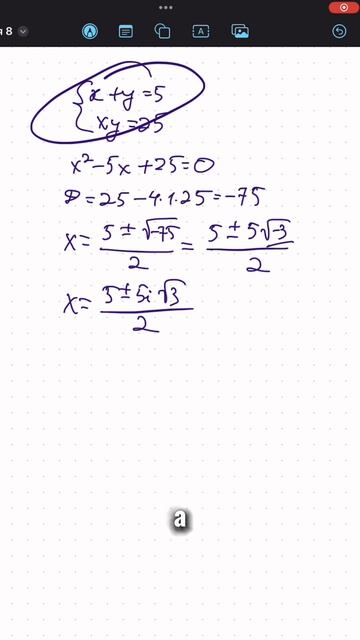 я 8
x + y = 5
xy = 25
x² - 5x + 25 = 0
D = 25 - 4·1·25 = -75
x = (5 ± √-75)/2 = (5 ± 5√-3)/2
x = (5 ± 5i√3)/2
а